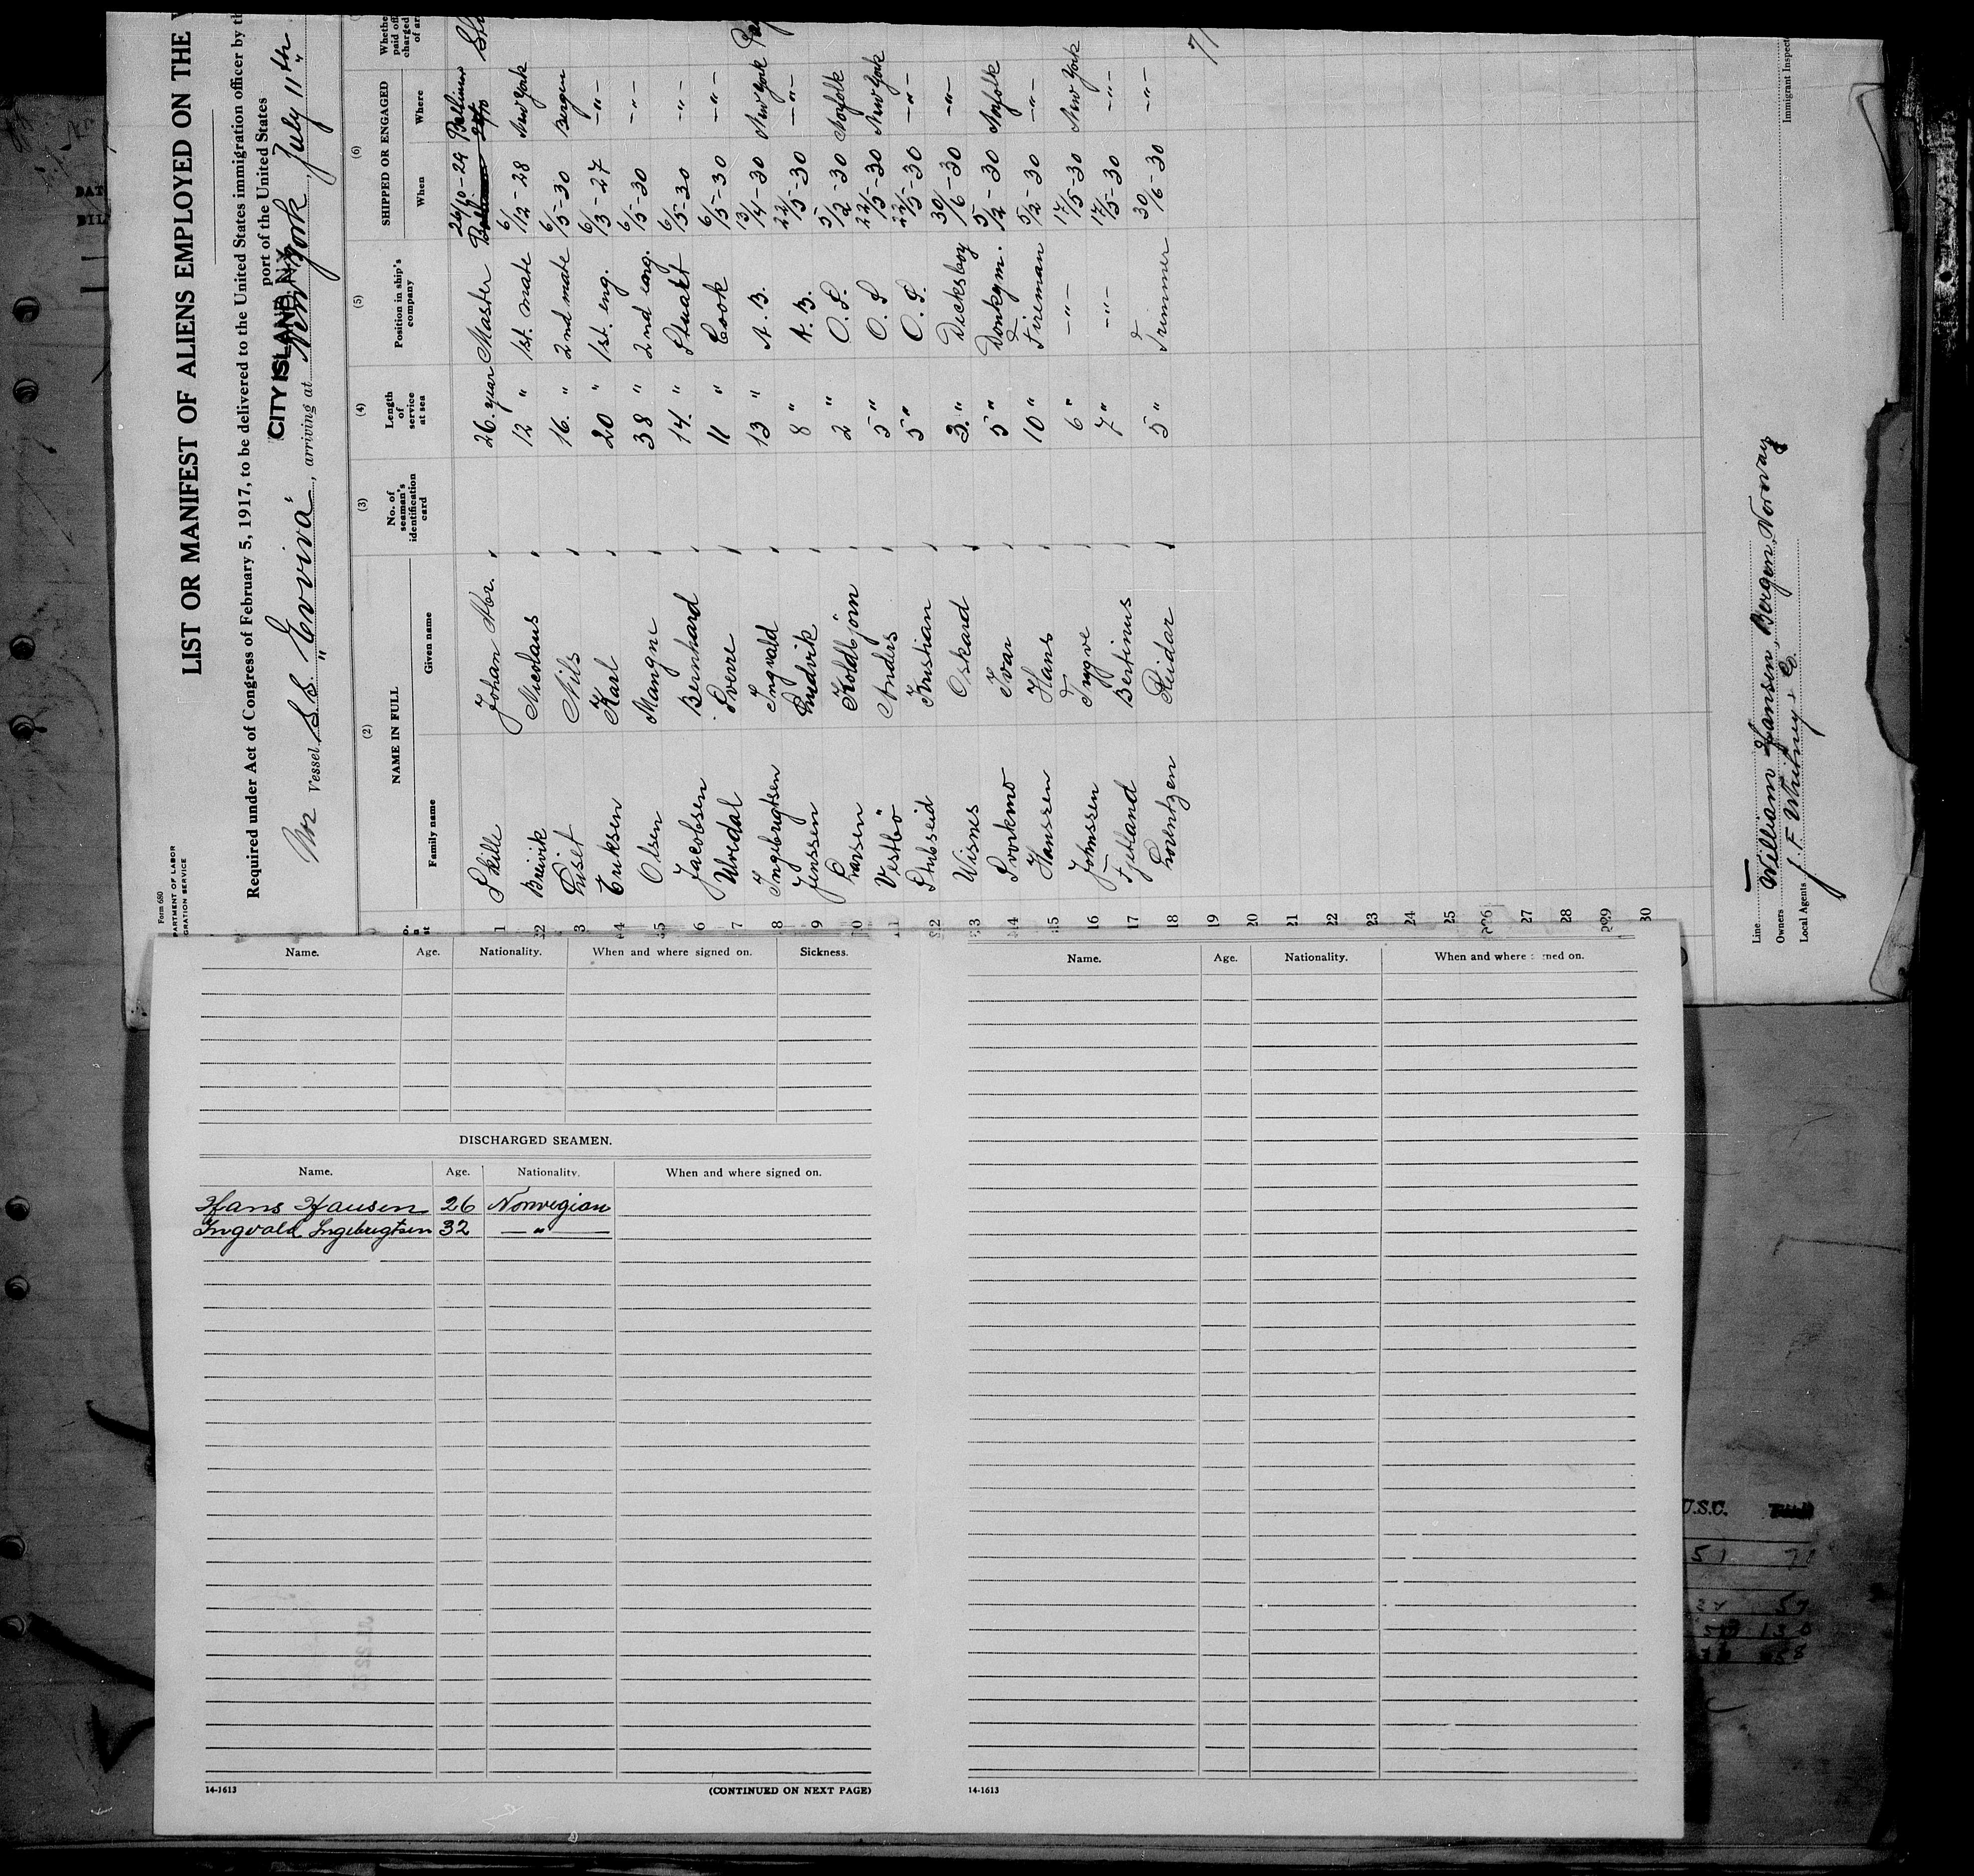 Form 680
PARTMENT OF LABOR
GRATION SERVICE
LIST OR MANIFEST OF ALIENS EMPLOYED ON THE
Required under Act of Congress of February 5, 1917, to be delivered to the United States immigration officer by th
port of the United States
CITY ISLAND, N.Y.
Nor Vessel S.S. "Evviva", arriving at New York, July 11th
(2) (3) (4) (5) (6)
NAME IN FULL No. of seaman's identification card Length of service at sea Position in ship's company SHIPPED OR ENGAGED Whethe paid off charged of ar
Family name Given name When Where
1 Skille Johan Nor. 26 year Master 26/10-24 Baltimore
2 Breivik Nicolaus 12 " 1st. mate 6/12-28 New York
3 Liset Nils 16. " 2nd mate 6/5-30 Bergen
4 Eriksen Karl 20 " 1st. eng. 6/3-27 -"-
5 Olsen Mangne 38 " 2nd eng. 6/5-30 -"-
6 Jacobsen Bernhard 14. " Stuart 6/5-30 -"-
7 Uredal Sverre 11 " Cook 6/5-30 -"-
8 Ingebrigtsen Ingvald 13 " A.B. 13/14-30 New York
9 Jenssen Ludvik 8 " A.B. 22/5-30 -"-
10 Larsen Koldbjörn 2 " O.S. 5/2-30 Norfolk
11 Vestbö Anders 5 " O.S. 22/5-30 New York
12 Stubseid Kristian 5 " O.S. 22/5-30 -"-
13 Wisnes Oskard 3. " Decksboy 30/6-30 -"-
14 Svorkmo Ivar 5 " Donkym. 5/2-30 Norfolk
15 Hanssen Hans 10 " Fireman 5/2-30 -"-
16 Johnssen Trygve 6 " -"- 17/5-30 New York
17 Fjetland Bertinus 7 " -"- 17/5-30 -"-
18 Lorentzen Reidar 5 " Trimmer 30/6-30 -"-
19
20
21
22
23
24
25
26
27
28
29
30
Line
Owners William Hansen, Bergen, Norway
Local Agents J. F. Whitney & Co.
Immigrant Inspect
Name. Age. Nationality. When and where signed on. Sickness.
DISCHARGED SEAMEN.
Name. Age. Nationality. When and where signed on.
Hans Hansen 26 Norwegian
Ingvald Ingebrigtsen 32 -"-
14-1613 (CONTINUED ON NEXT PAGE)
Name. Age. Nationality. When and where ned on.
14-1613
U.S.C.